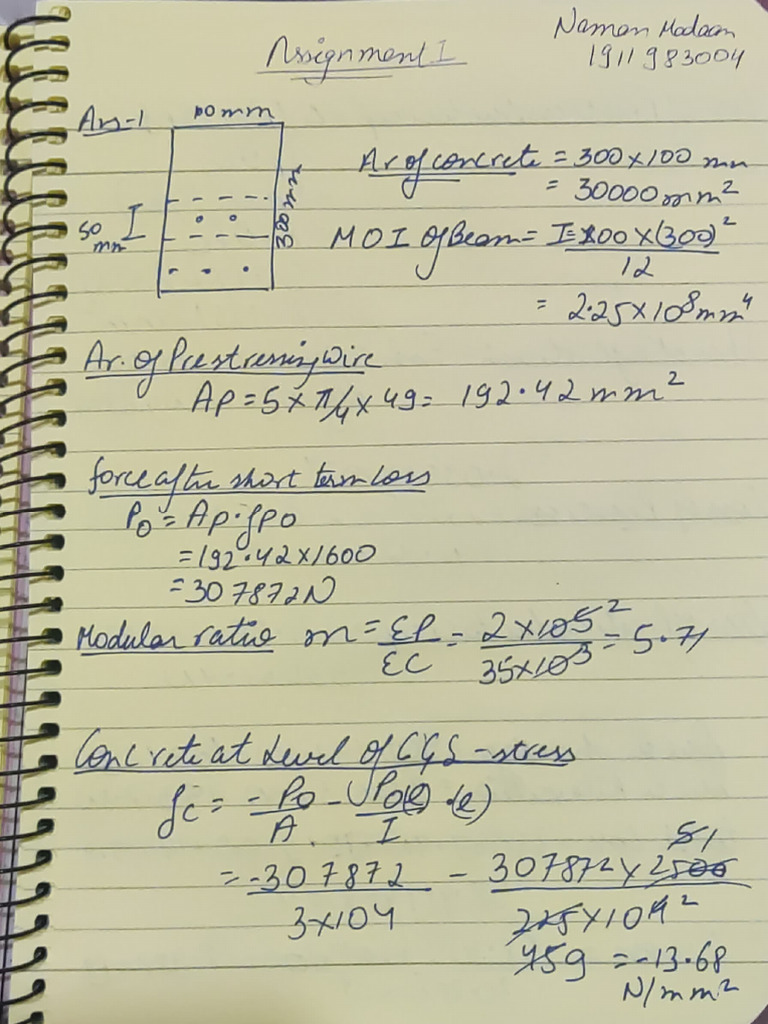 Naman Madaan
1911983004
Assignment I
Ans-1
100mm
300mm
50
mm
Ar of concrete = 300 x 100 mm
= 30000 mm²
MOI of Beam = I = 100 x (300)²
12
= 2.25 x 10⁸ mm⁴
Ar. of Prestressing wire
Ap = 5 x π/4 x 49 = 192.42 mm²
force after short term loss
Po = Ap . fpo
= 192.42 x 1600
= 307872 N
Modular ratio m = EP = 2 x 10⁵ ² = 5.71
EC 35 x 10³
Concrete at Level of CGS - stress
fc = -Po - Po(e) . (e)
A I
= -307872 - 307872 x 2500 51
3 x 104 225 x 10⁴ ²
459 = -13.68
N/mm²